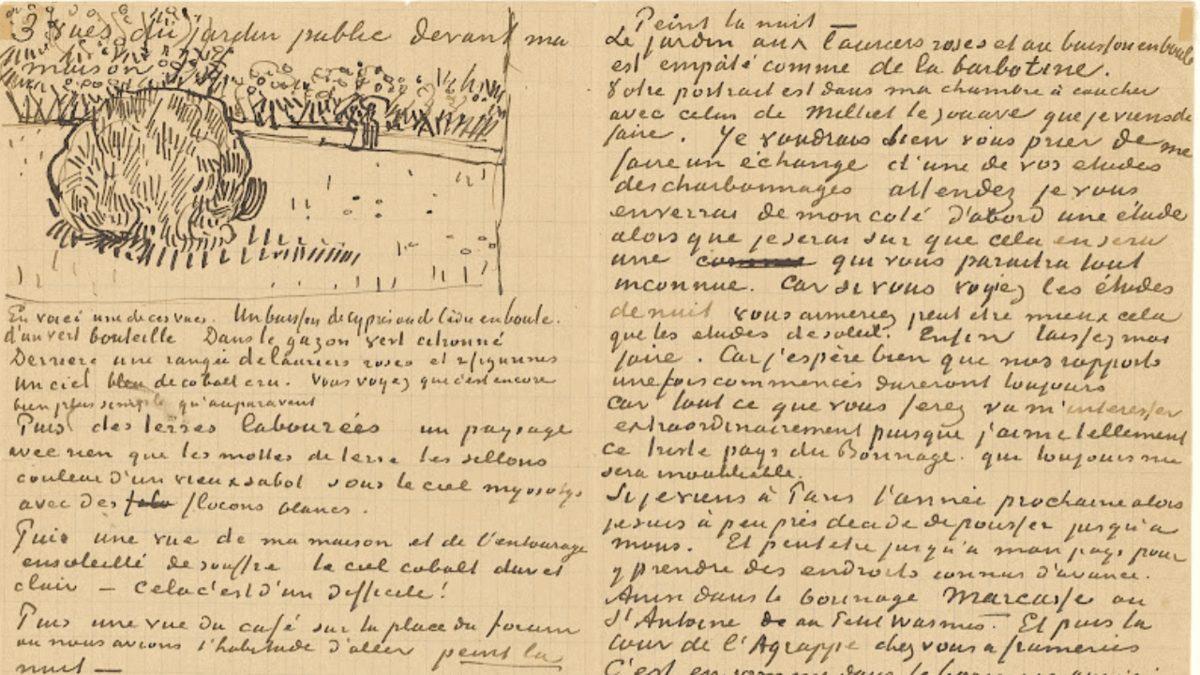 3 vues du jardin public devant ma
maison
En voici une de ces vues. Un buisson de cyprès ou de cèdre en boule.
d'un vert bouteille Dans le gazon vert citronné
Derriere une rangée de lauriers roses et 2 figurines
Un ciel bleu de cobalt cru. Vous voyez que c'est encore
bien plus simple qu'auparavant
Puis des terres labourées un paysage
avec rien que les mottes de terre les sillons
couleur d'un vieux sabot sous le ciel myosotys
avec des flocons blancs.
Puis une vue de ma maison et de l'entourage
ensoleillé de souffre le ciel cobalt dur et
clair – Cela c'est d'un difficile!
Puis une vue du café sur la place du forum
ou nous avions l'habitude d'aller peint la
nuit –
Peint la nuit –
Le jardin aux lauriers roses et au buisson en boule
est empâté comme de la barbotine.
Votre portrait est dans ma chambre à coucher
avec celui de Milliet le zouave que je viens de
faire. Je voudrais bien vous prier de me
faire un échange d'une de vos etudes
des charbonnages attendez je vous
enverrai de mon coté d'abord une étude
alors que je serai sur que cela en sera
une qui vous paraitra tout
inconnue. Car si vous voyiez les études
de nuit vous aimeriez peut etre mieux cela
que les etudes de soleil. Enfin laissez moi
faire. Car j'espère bien que nos rapports
une fois commencés dureront toujours
car tout ce que vous ferez va m'interesser
extraordinairement puisque j'aime tellement
ce triste pays du Borinage. qui toujours me
sera inoubliable.
Si je viens à Paris l'année prochaine alors
je suis à peu près decidé de pousser jusqu'à
mons. Et peut etre jusqu'à mon pays pour
y prendre des endroits connus d'avance.
Ainsi dans le borinage Marcasse ou
St Antoine au Petit Wasmes. Et puis la
cour de l'Agrappe chez vous a frameries
C'est en somme dans le